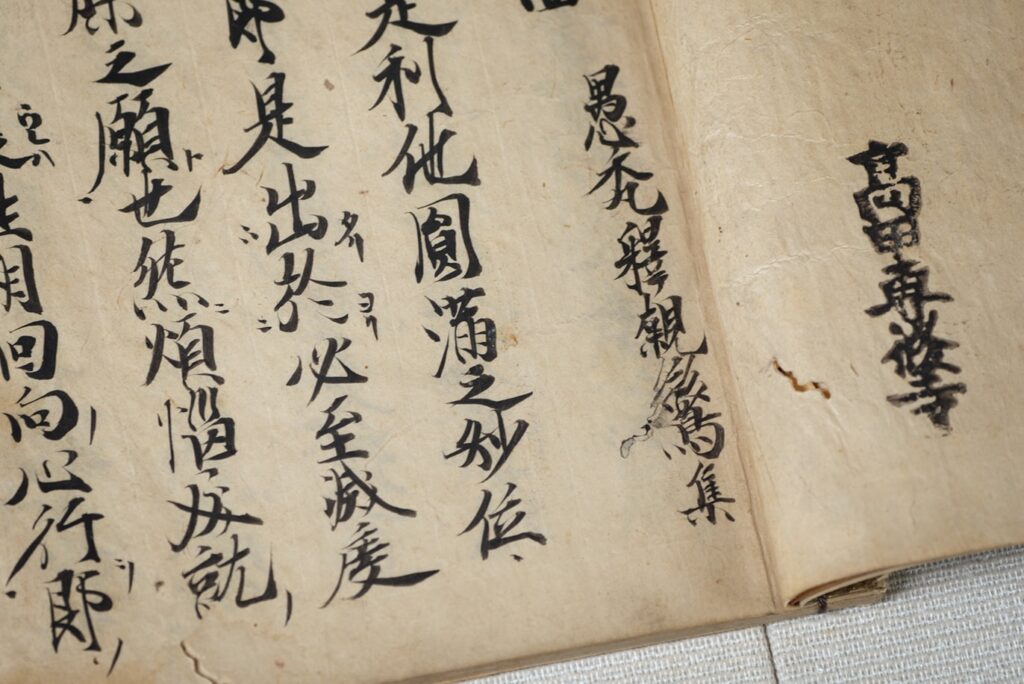 高田専修寺
愚禿釋親鸞集
是利他圓滿之妙位
即是出於必至滅度
之願也然煩惱成就
往相回向心行即